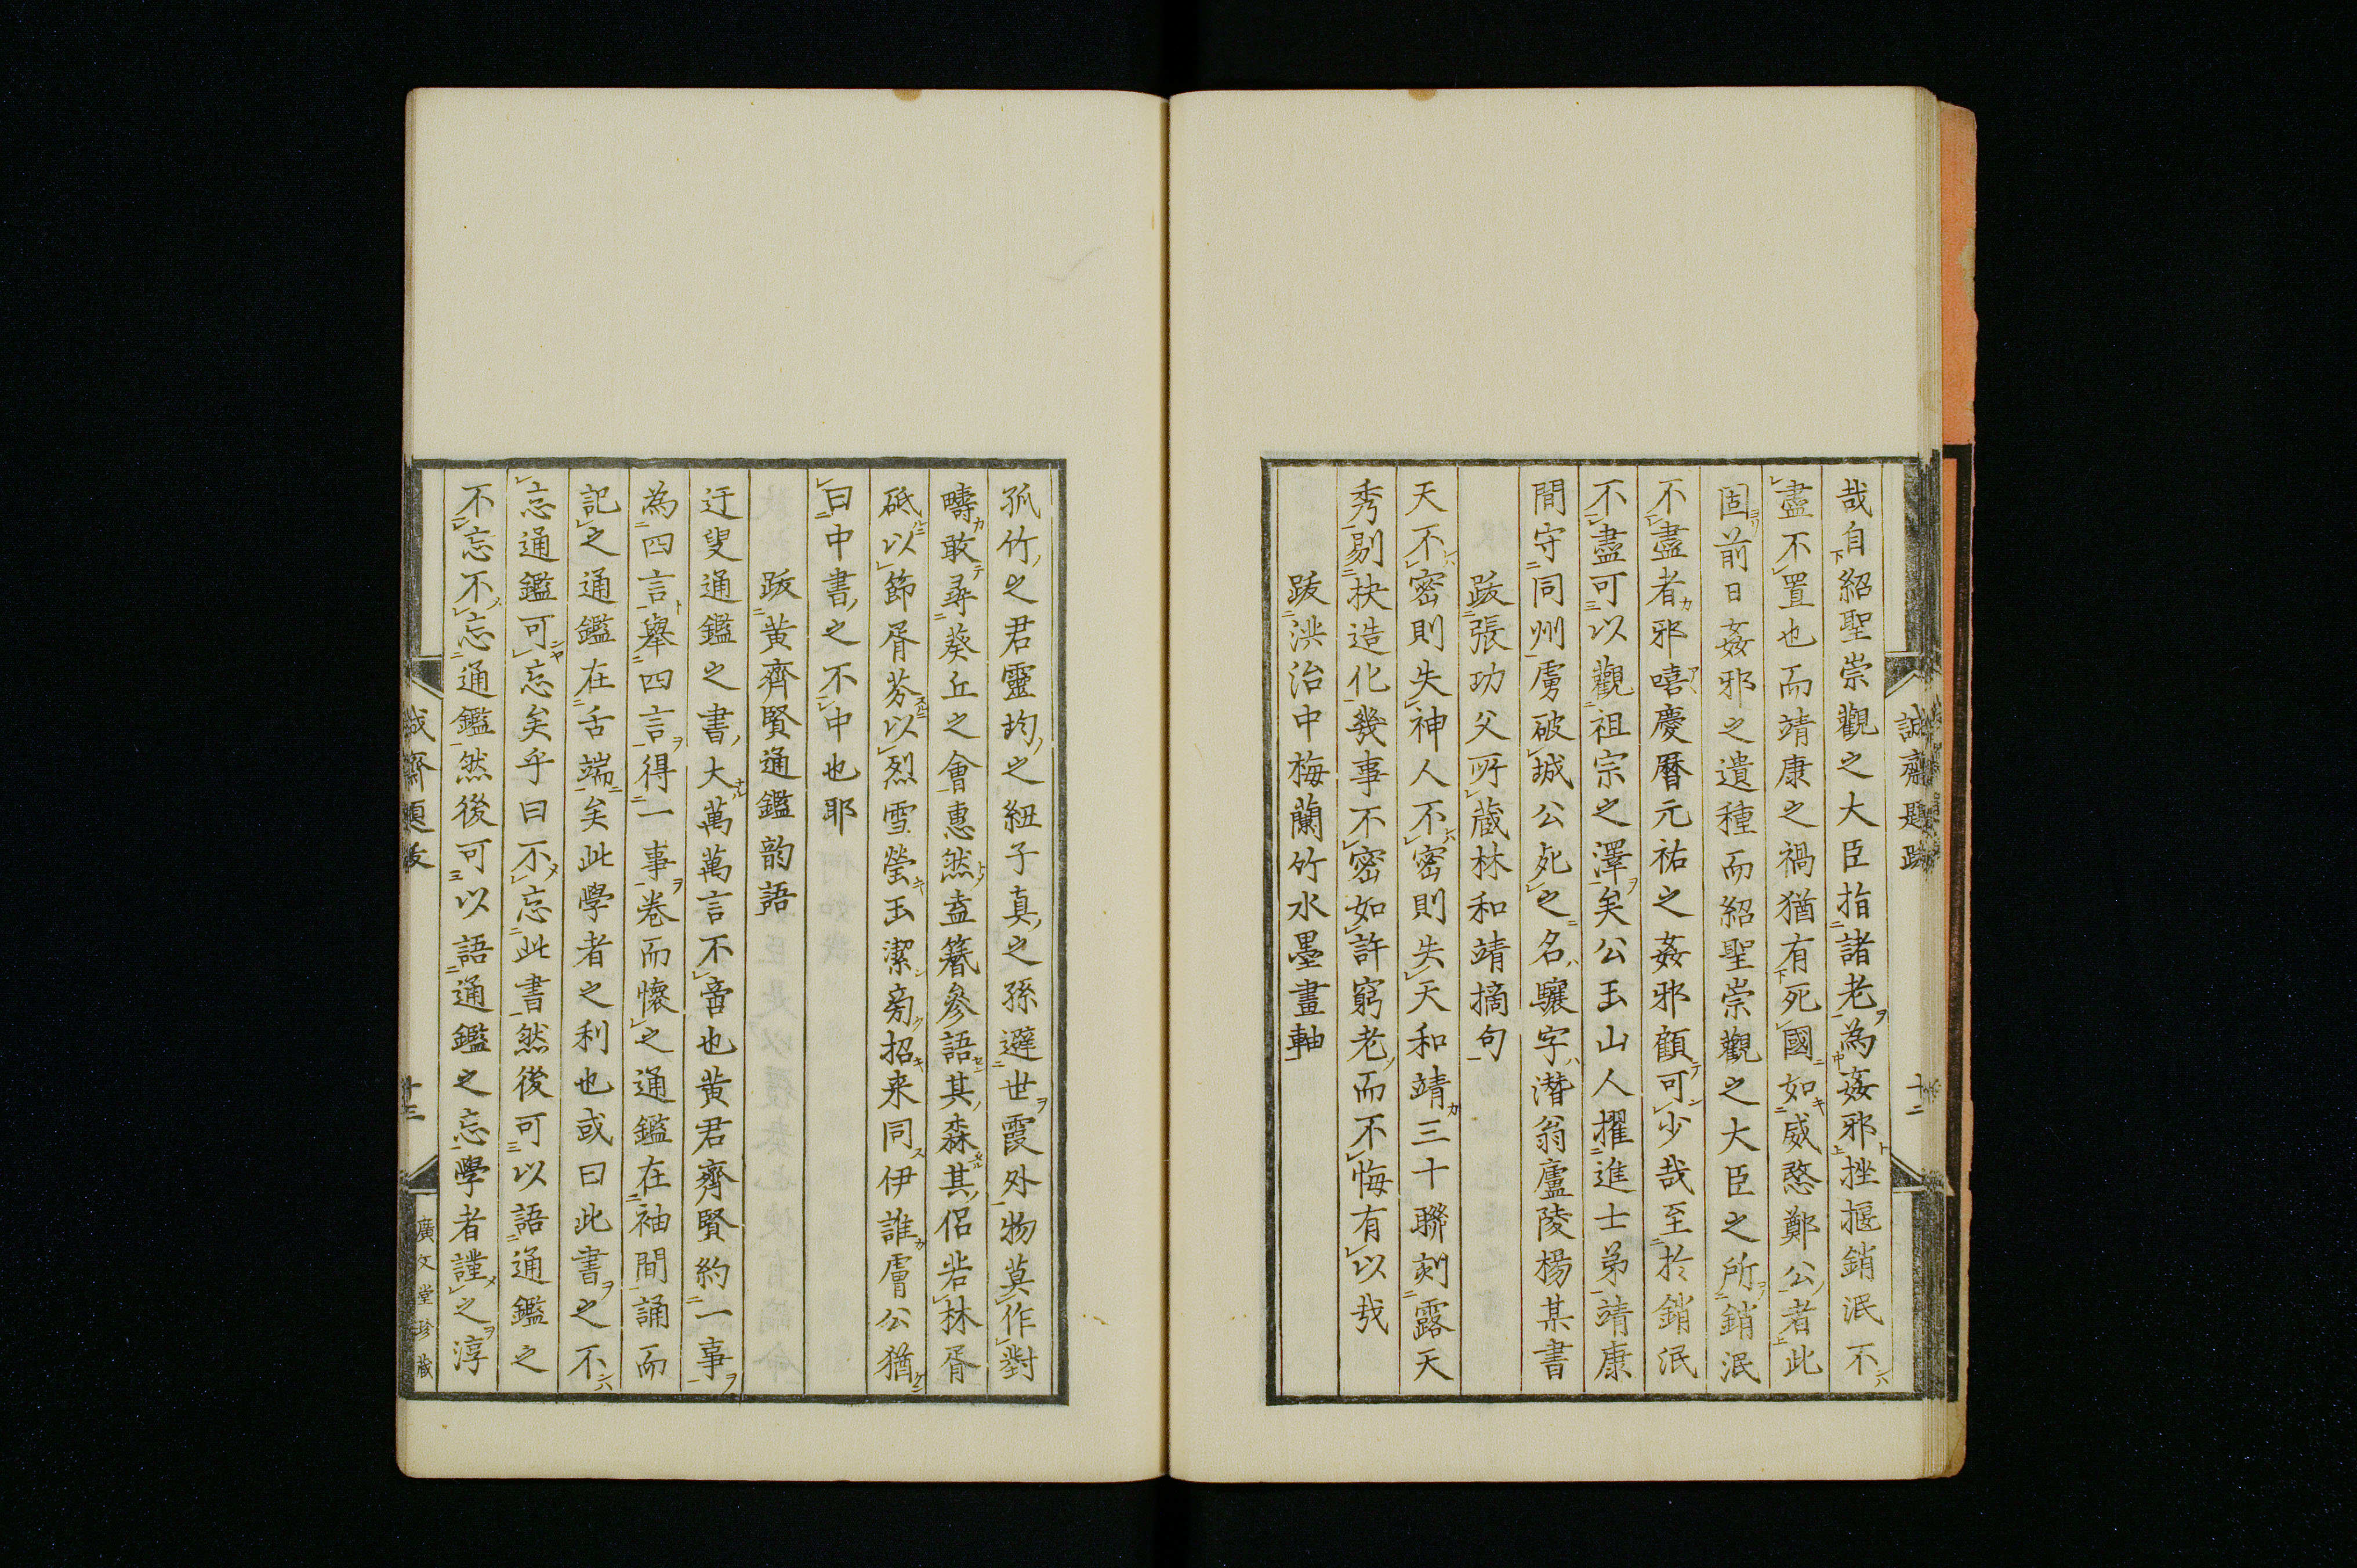 誠齋題跋 十二
哉自紹聖崇觀之大臣指諸老為姦邪挫搌銷泯不
盡不置也而靖康之禍猶有死國如威愍鄭公者此
固前日姦邪之遺種而紹聖崇觀之大臣之所銷泯
不盡者邪嘻慶曆元祐之姦邪顧可少哉至於銷泯
不盡可以觀祖宗之澤矣公玉山人擢進士弟靖康
間守同州虜破城公死之名驤字潛翁廬陵楊某書
跋張功父所藏林和靖摘句
天不密則失神人不密則失天和靖三十聯刻露天
秀剔抉造化幾事不密如許窮老而不悔有以哉
跋洪治中梅蘭竹水墨畫軸
孤竹之君靈均之紐子真之孫避世霞外物莫作對
疇敢尋葵丘之會惠然盍簪參語其森其侣岩林胥
砥以節胥芬以烈雪瑩玉潔旁招来同伊誰膚公猶
曰中書之不中也耶
跋黄齊賢通鑑韵語
迂叟通鑑之書大萬萬言不啻也黄君齊賢約一事
為四言舉四言得一事卷而懷之通鑑在袖間誦而
記之通鑑在舌端矣此學者之利也或曰此書之不
忘通鑑可忘矣乎曰不忘此書然後可以語通鑑之
不忘不忘通鑑然後可以語通鑑之忘學者謹之淳
誠齋題跋 十三 廣文堂珍藏